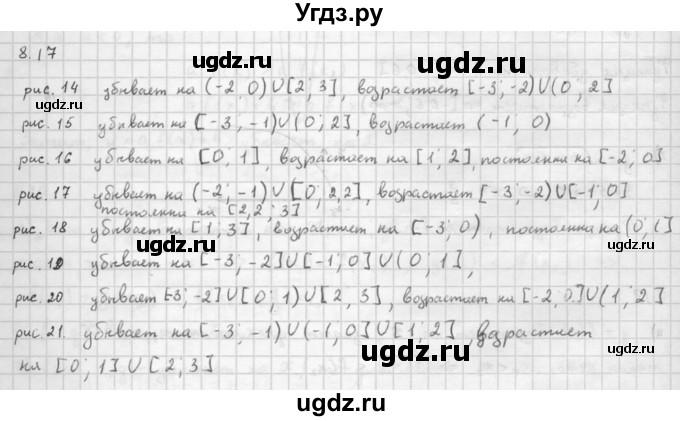 Угдз.ру
8.17
рис. 14 убывает на (-2; 0) U [2; 3], возрастает [-3; -2) U (0; 2]
рис. 15 убывает на [-3; -1) U (0; 2], возрастает (-1; 0)
рис. 16 убывает на [0; 1], возрастает на [1; 2], постоянна на [-2; 0]
рис. 17 убывает на (-2; -1) U [0; 2,2], возрастает [-3; -2) U [-1; 0]
постоянна на [2,2; 3]
рис. 18 убывает на [1; 3], возрастает на [-3; 0), постоянна на (0; 1]
рис. 19 убывает на [-3; -2] U [-1; 0] U (0; 1],
рис. 20 убывает [-3; -2] U [0; 1) U [2; 3], возрастает на [-2; 0] U (1; 2]
рис. 21. убывает на [-3; -1) U (-1; 0] U [1; 2], возрастает
на [0; 1] U [2; 3]
ugdz.ru
ugdz.ru
ugdz.ru
ugdz.ru
ugdz.ru
ugdz.ru
ugdz.ru
ugdz.ru
ugdz.ru
ugdz.ru